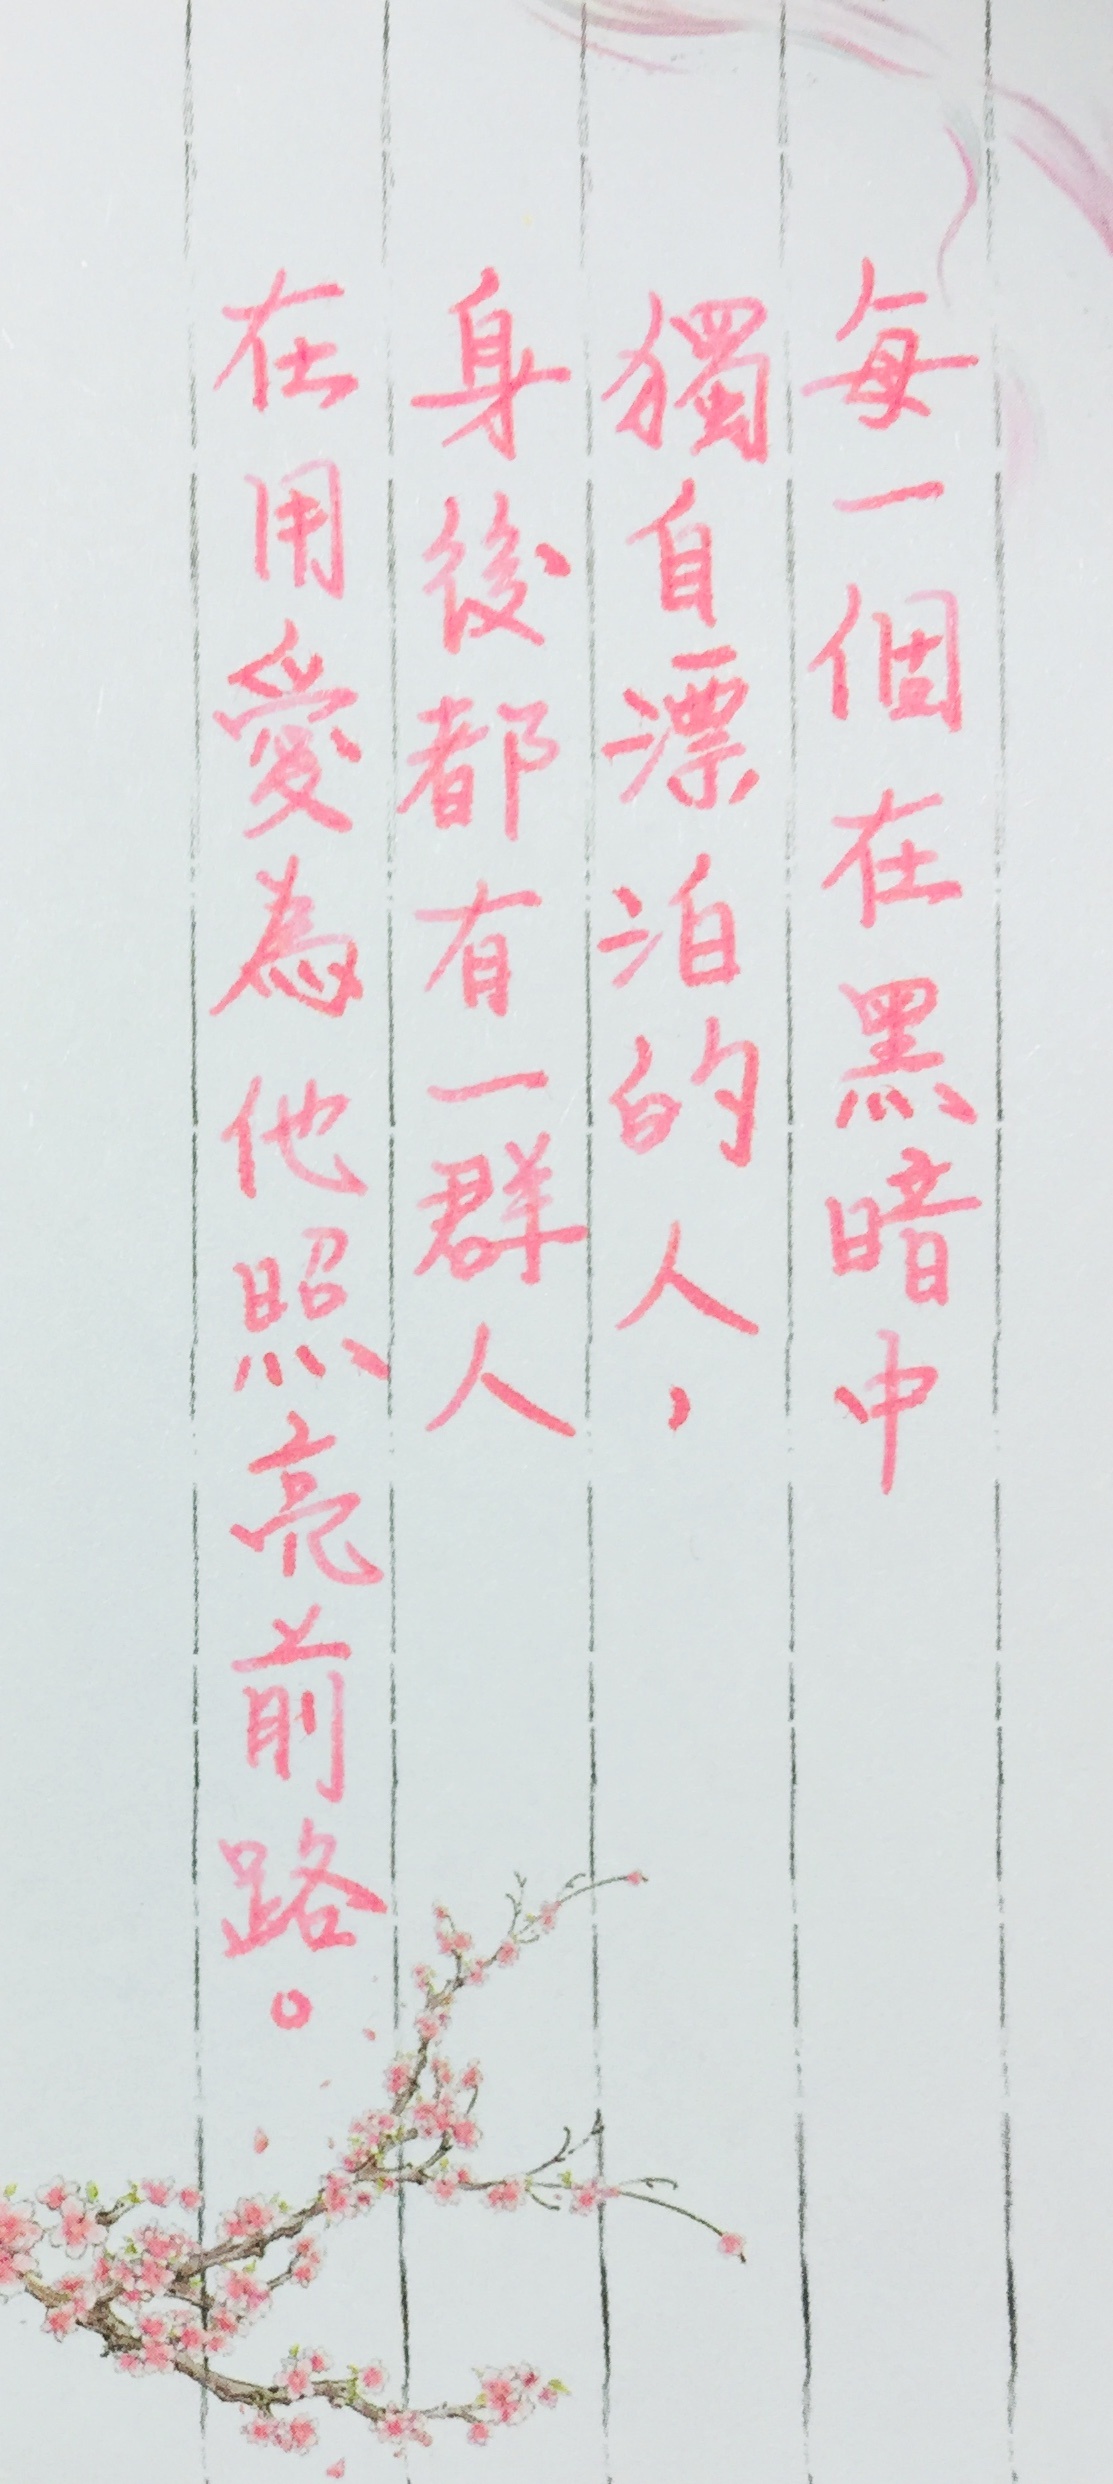 每一個在黑暗中
獨自漂泊的人，
身後都有一群人
在用愛為他照亮前路。